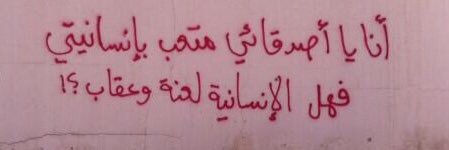 أنا يا أصدقائي متعب بإنسانيتي
فهل الإنسانية لعنة وعقاب ؟!